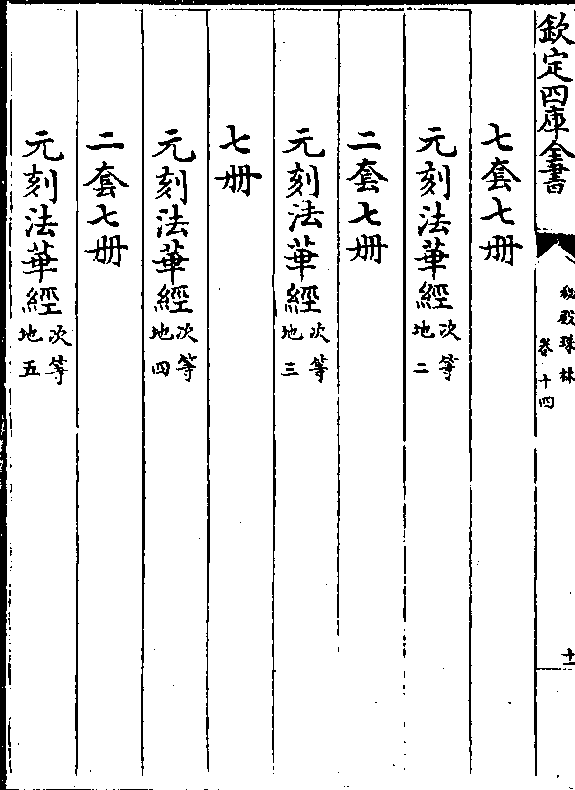 欽定四庫全書
秘殿珠林
卷十四
十一
七套七冊
元刻法華經次等地二
二套七冊
元刻法華經次等地三
七冊
元刻法華經次等地四
二套七冊
元刻法華經次等地五